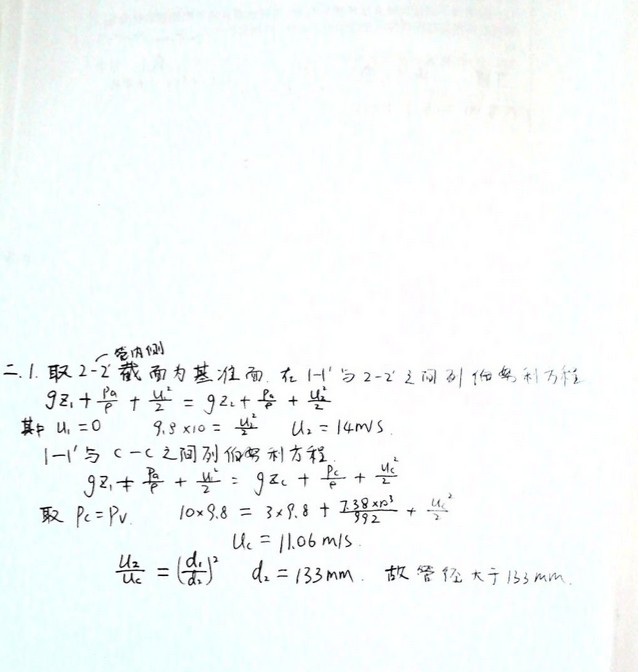 管内侧
二.1.取2-2'截面为基准面.在1-1'与2-2'之间列伯努利方程
gz₁+Pa/ρ+u₁²/2=gz₂+Pa/ρ+u₂²/2
其中 u₁=0 9.8×10=u₂²/2 u₂=14m/s.
1-1'与C-C之间列伯努利方程.
gz₁+Pa/ρ+u₁²/2=gzc+Pc/ρ+uc²/2
取 Pc=Pv. 10×9.8=3×9.8+7.38×10³/992+uc²/2
uc=11.06m/s.
u₂/uc=(d₁/d₂)² d₂=133mm. 故管径大于133mm.